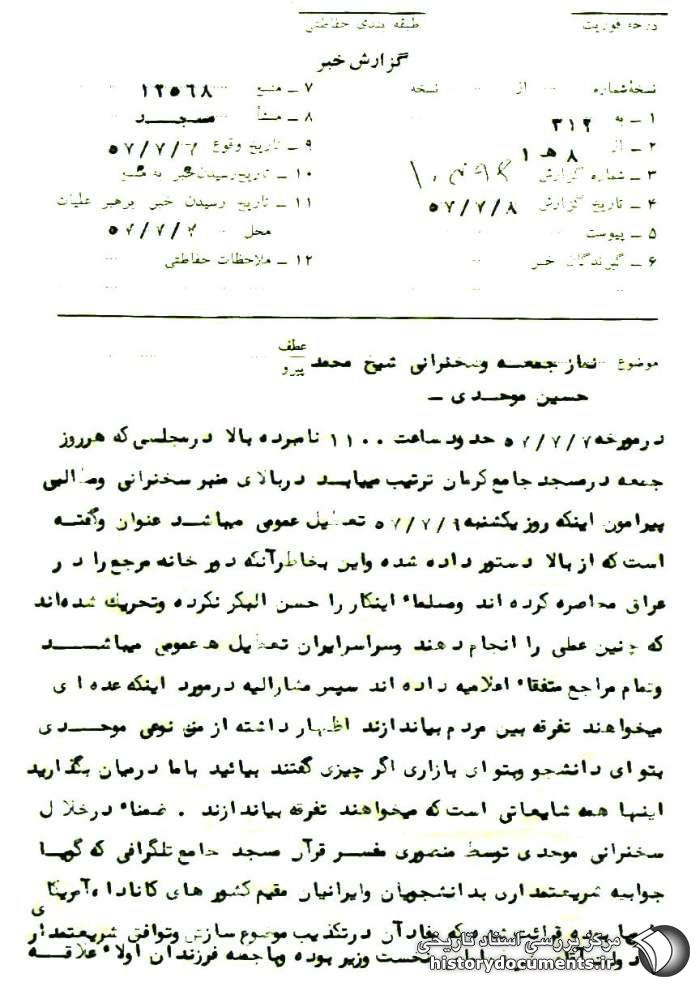 درجه فوریت
طبقه بندی حفاظتی
گزارش خبر
نسخه شماره از نسخه
۱ – به ۳۱۲
۲ – از ۸ هـ ۱
۳ – شماره گزارش
۴ – تاریخ گزارش ۵۷/۷/۸
۵ – پیوست
۶ – گیرندگان خبر
۷ – منبع ۱۲۵۶۸
۸ – منشأ مسجد
۹ – تاریخ وقوع
۱۰ – تاریخ رسیدن خبر به منبع
۱۱ – تاریخ رسیدن خبر برهبر عملیات
محل
۱۲ – ملاحظات حفاظتی
موضوع نماز جمعه و سخنرانی شیخ محمد
حسین موحدی –
عطف
پیرو
درمورخه ۵۷/۷/۷ حدود ساعت ۱۱۰۰ نامبرده بالا درمجلسی که هرروز
جمعه درمسجد جامع کرمان ترتیب مییابد دربالای منبر سخنرانی ومطالبی
پیرامون اینکه روز یکشنبه ۵۷/۷/۹ تعطیل عمومی میباشد عنوان وگفته
است که از بالا دستور داده شده واین بخاطرآنکه دور خانه مرجع را در
عراق محاصره کرده اند ومسلماً اینکار را حسن البکر نکرده وتحریک شده‌اند
که چنین عملی را انجام دهند وسراسرایران تعطیل عمومی میباشد
وتمام مراجع متفقاً اعلامیه داده اند سپس مشارالیه درمورد اینکه عده ای
میخواهند تفرقه بین مردم بیاندازند اظهار داشته از من نوعی موحدی
بتو ای دانشجو وبتو ای بازاری اگر چیزی گفتند بیائید باما درمیان بگذارید
اینها همه شایعاتی است که میخواهند تفرقه بیاندازند . ضمناً درخلال
سخنرانی موحدی توسط منصوری مفسر قرآن مسجد جامع تلگرافی که گویا
جوابیه شریعتمداری بدانشجویان وایرانیان مقیم کشور های کانادا، آمریکا
قرائت که مفادآن درتکذیب موضوع سازش وتوافق شریعتمداری
نخست وزیر بوده وباجمعه فرزندان اولاً علاقه
مرکز بررسی اسناد تاریخی
historydocuments.ir